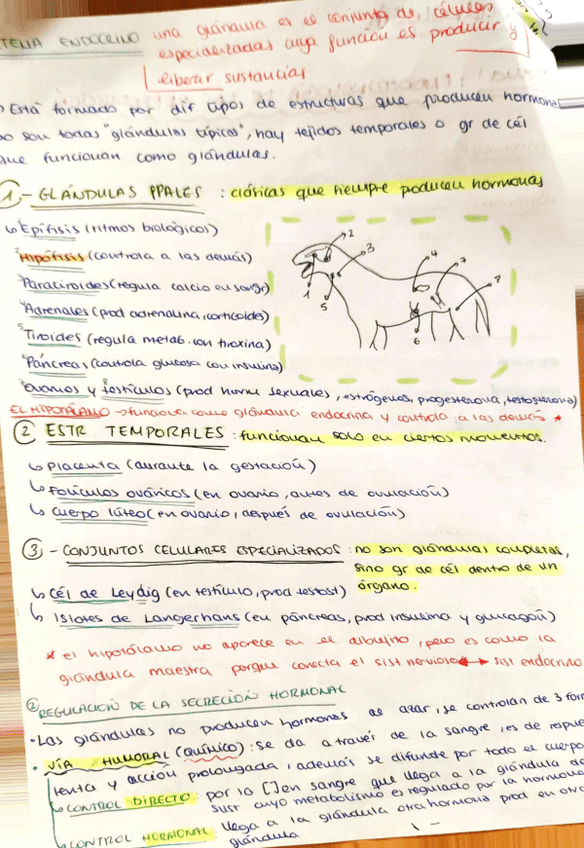 TEMA ENDOCRINO una glándula es el conjunto de células
especializadas cuya función es producir y
liberar sustancias
Está formado por dif tipos de estructuras que producen hormona
no son todas "glándulas típicas", hay tejidos temporales o gr de cél
que funcionan como glándulas.
1 - GLÁNDULAS PPALES : clásicas que siempre producen hormonas
Epífisis (ritmos biológicos)
2 Hipófisis (controla a las demás)
3 Paratiroides (regula calcio en sangre)
4 Adrenales (prod adrenalina, corticoides)
5 Tiroides (regula metab. con tiroxina)
6 Páncreas (controla glucosa con insulina)
7 Ovarios y testículos (prod horm sexuales, estrógenos, progesterona, testosterona)
1 2 3 4 5 6 7 7
EL HIPOTÁLAMO → funciona como glándula endocrina y controla a las demás *
2 ESTR TEMPORALES : funcionan solo en ciertos momentos.
Placenta (durante la gestación)
Folículos ováricos (en ovario, antes de ovulación)
Cuerpo lúteo (en ovario, después de ovulación)
3 - CONJUNTOS CELULARES ESPECIALIZADOS : no son glándulas completas,
sino gr de cél dentro de un
órgano.
Cél de Leydig (en testículo, prod testost)
Islotes de Langerhans (en páncreas, prod insulina y glucagón)
* el hipotálamo no aparece en el dibujito, pero es como la
glándula maestra porque conecta el sist nervioso ↔ sist endocrino
2 REGULACIÓN DE LA SECRECIÓN HORMONAL
• Las glándulas no producen hormonas al azar, se controlan de 3 for
• VÍA HUMORAL (QUÍMICO) : se da a través de la sangre, es de respue
lenta y acción prolongada, además se difunde por todo el cuerpo
CONTROL DIRECTO : por la [] en sangre que llega a la glándula de
sust cuyo metabolismo es regulado por la hormona
CONTROL HORMONAL : llega a la glándula otra hormona prod en otra
glándula